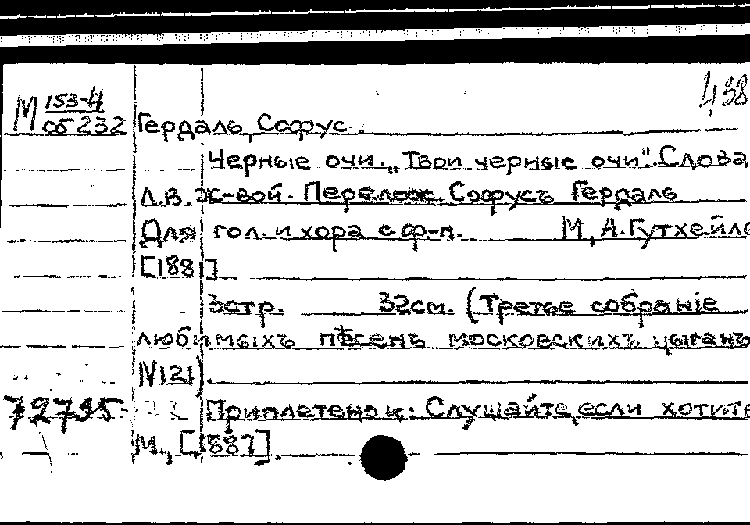 438
М 153-4
об 232 Гердаль, Софус.
Черные очи. „Твои черные очи". Слова
Л.В. Ж-вой. Перелож. Софусъ Гердаль
Для гол. и хора с ф-п. М, А. Гутхейл
[1881]
3стр. 32см. (Третье собранiе
любимыхъ пѣсенъ московскихъ цыганъ
N121).
72795- Приплетено к: Слушайте, если хотите
М., [1887].